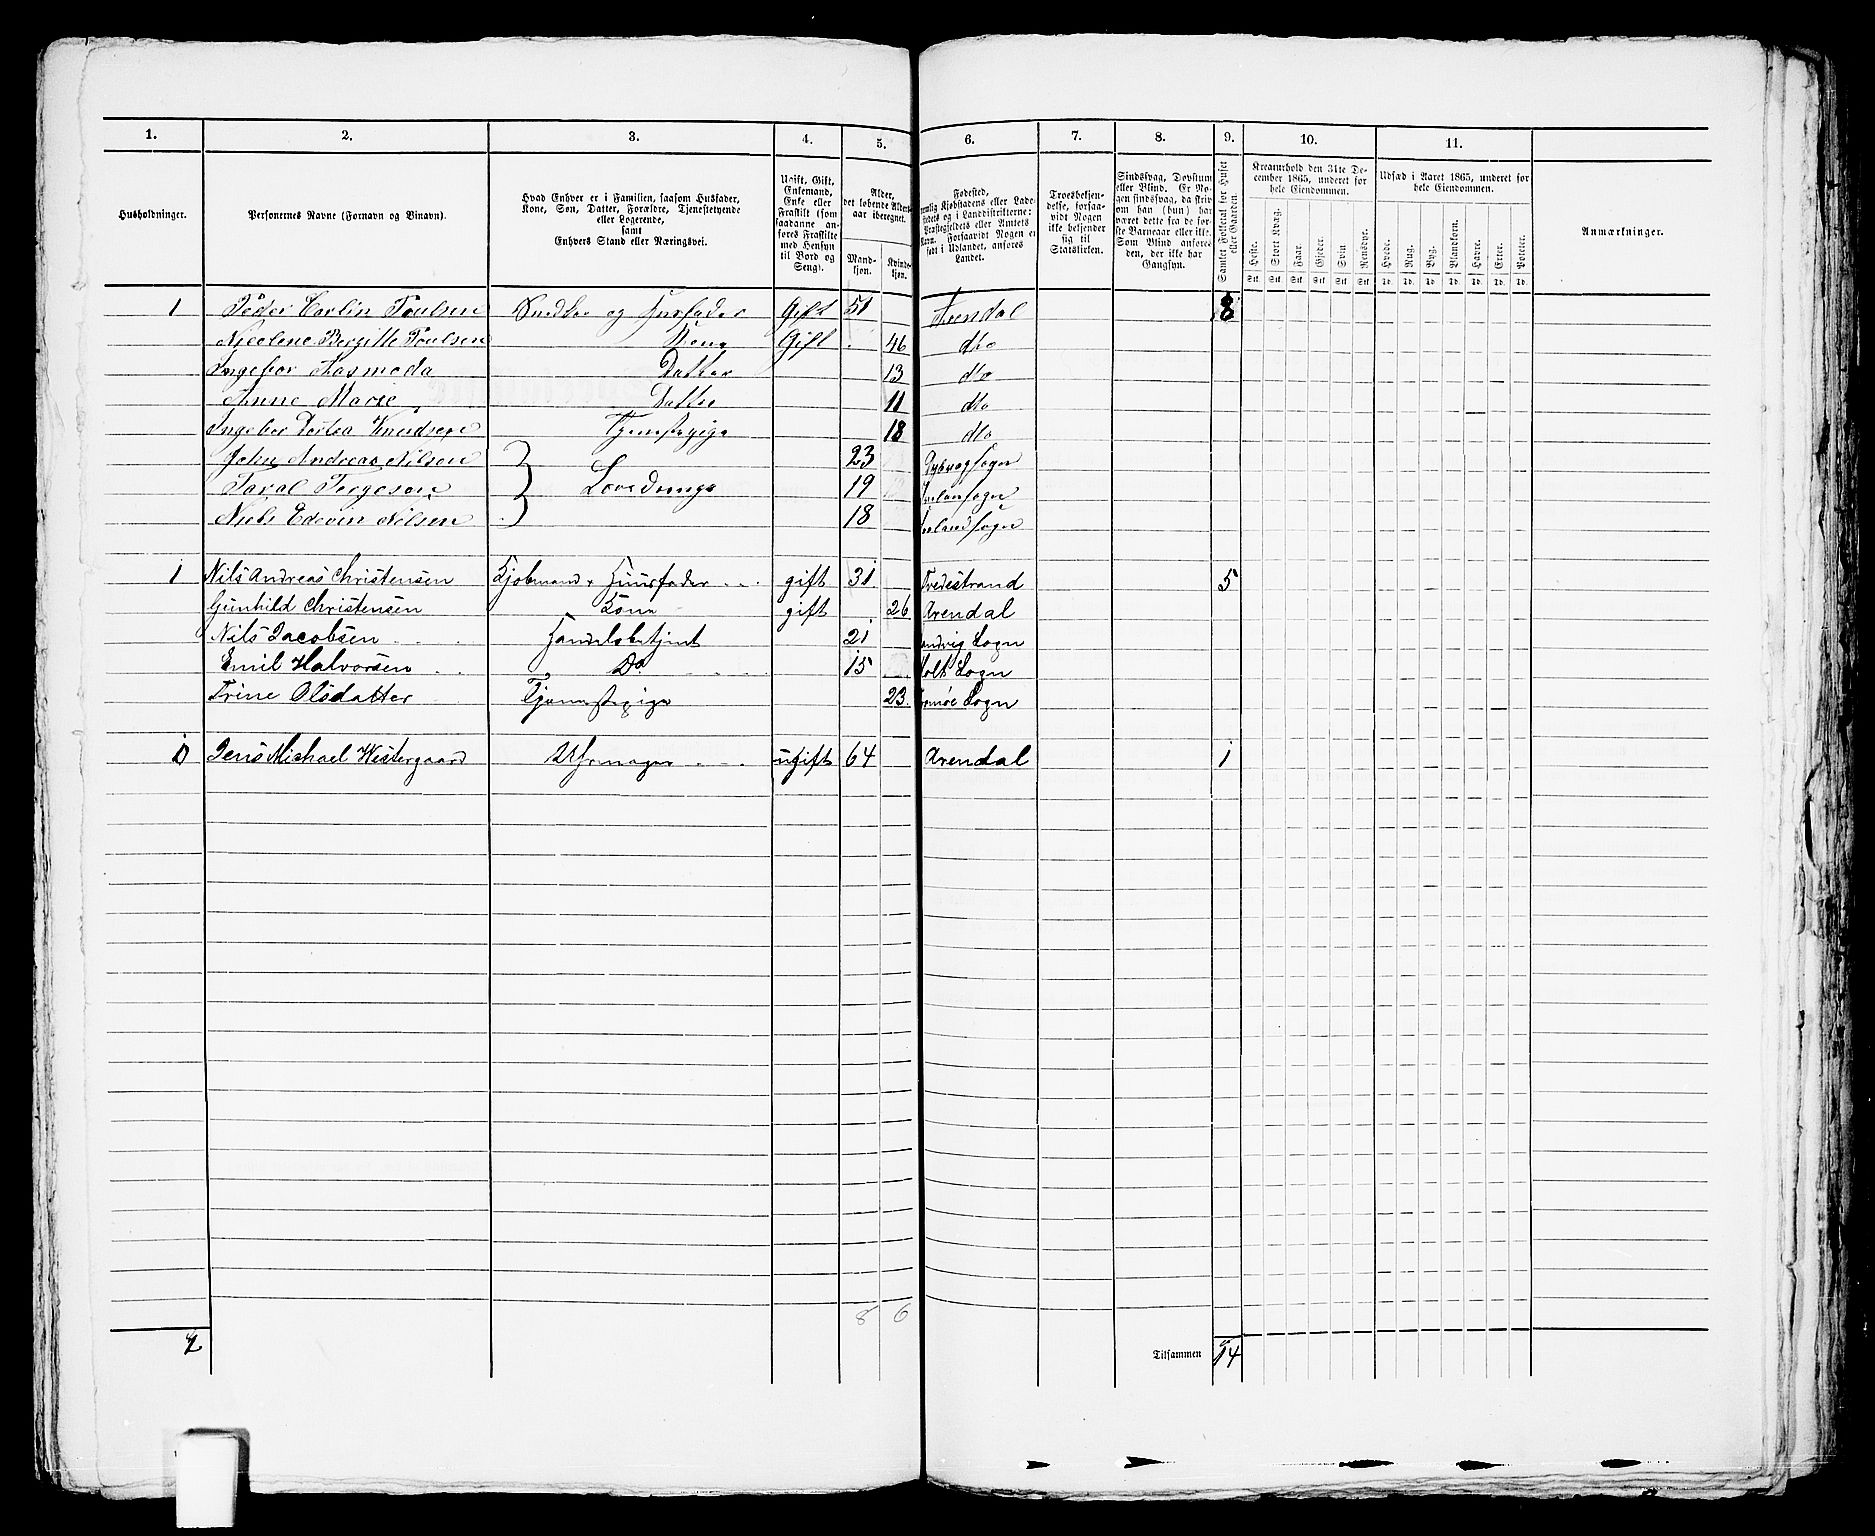 1. 2. 3. 4. 5. 6. 7. 8. 9. 10. 11.
Husholdninger.
Personernes Navne (Fornavn og Binavn).
Hvad Enhver er i Familien, saasom Husfader,
Kone, Søn, Datter, Forældre, Tjenestetyende
eller Logerende,
samt
Enhvers Stand eller Næringsvei.
Ugift, Gift,
Enkemand,
Enke eller
Fraskilt (som
saadanne an-
føres Fraskilte
med Hensyn
til Bord og
Seng).
Alder,
det løbende Alders-
aar iberegnet.
Mand-
kjøn.
Kvinde-
kjøn.
Fødested,
nemlig Kjøbstadens eller Lade-
stedets og i Landdistrikterne:
Præstegjeldets eller Amtets
Navn. Forsaavidt Nogen er
født i Udlandet, anføres
Landet.
Troesbekjen-
delse, forsaa-
vidt Nogen
ikke bekjender
sig til
Statskirken.
Sindssvag, Døvstum
eller Blind. Er No-
gen sindssvag, da skriv
om han (hun) har
været dette fra de før-
ste Barneaar eller ikke.
Som Blind anføres
den, der ikke har
Gangsyn.
Samlet Folketal for Huset
eller Gaarden
Kreaturhold den 31te De-
cember 1865, underet for
hele Eiendommen.
Heste. Stort Kvæg. Faar. Gjeder. Svin Rensdyr.
Stk. Stk. Stk. Stk. Stk. Stk.
Udsæd i Aaret 1865, underet for
hele Eiendommen.
Hvede. Rug. Byg. Blandkorn. Havre. Erter. Poteter.
Td. Td. Td. Td. Td. Td. Td.
Anmærkninger.
1 Peder Carlin Poulsen Snedker og Husfader Gift 51 Arendal 8
Nicolene Bergitte Poulsen Kone Gift 46 dto
Ingebor Asmoda Datter 13 dto
Anne Marie Datter 11 dto
Ingebor Dortea Knudsen Tjenestepige 18 dto
John Andreas Nilsen 23 Dybvag Sogn
Taral Tergesen Læredrenge 19 sogn
Niels Edevin Nilsen 18 sogn
1 Nils Andreas Christensen Kjøbmand & Huusfader gift 31 Tvedestrand 5
Gunhild Christensen Kone gift 26 Arendal
Nils Jacobsen Handelsbetjent 21 Sogn
Emil Halvorsen Do 15 Holt Sogn
Trine Olsdatter Tjenestepige 23 Tromøe Sogn
0 Jens Michael Westergaard Uhrmager ugift 64 Arendal 1
8 6
2 Tilsammen 14